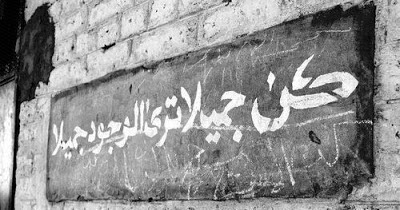 كن جميلا ترى الوجود جميلا